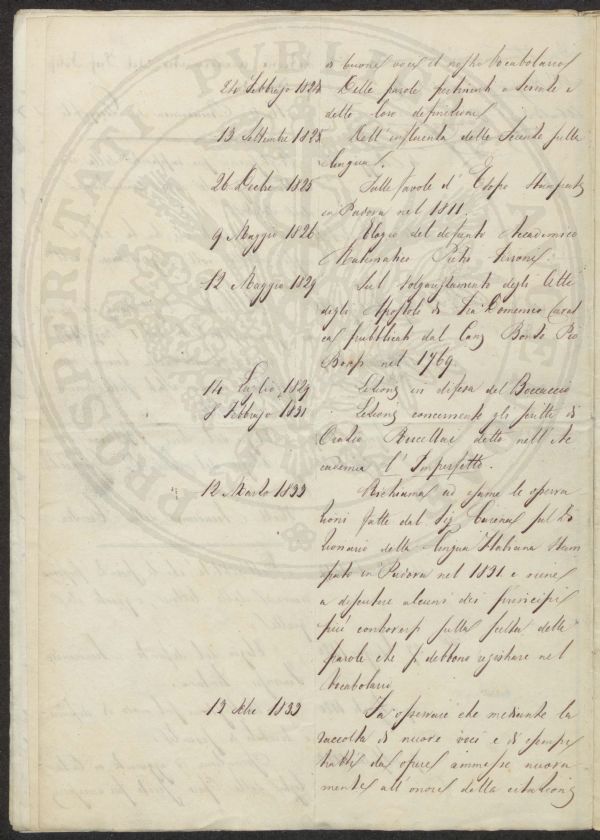 di buone voci il nostro Vocabolario
24 Febbrajo 1824 Delle parole pertinenti a Scienze e
delle loro definizioni
13 Settembre 1825 Dell'influenza delle Scienze sulla
lingua.
26 Decbre 1825 Sulle favole d'Esopo stampate
in Padova nel 1811.
9 Maggio 1826 Elogio del defunto Accademico
Matematico Pietro Ferroni.
12 Maggio 1829 Sul volgarizzamento degli Atti
degli Apostoli di Fra Domenico Caval
ca pubblicati dal Can.
nel 1769
14 Luglio 1829 Lezione in difesa del Boccaccio
8 Febbrajo 1831 Lezione concernente gli scritti di
Orazio Rucellai detto nell'Ac
cademia l'Imperfetto.
12 Marzo 1833 Richiama ad esame le osserva
zioni fatte dal Sig. Carena sul Di
zionario della Lingua Italiana stam
pato in Padova nel 1831 e viene
a discutere alcuni dei principj
più controversi sulla scelta delle
parole che si debbono registrare nel
Vocabolario
1833 Fa osservare che mediante la
raccolta di nuove voci e di esempi
tratti da opere ammesse nuova
mente all'onore della citazione
PROSPERITATI PVBLICAE